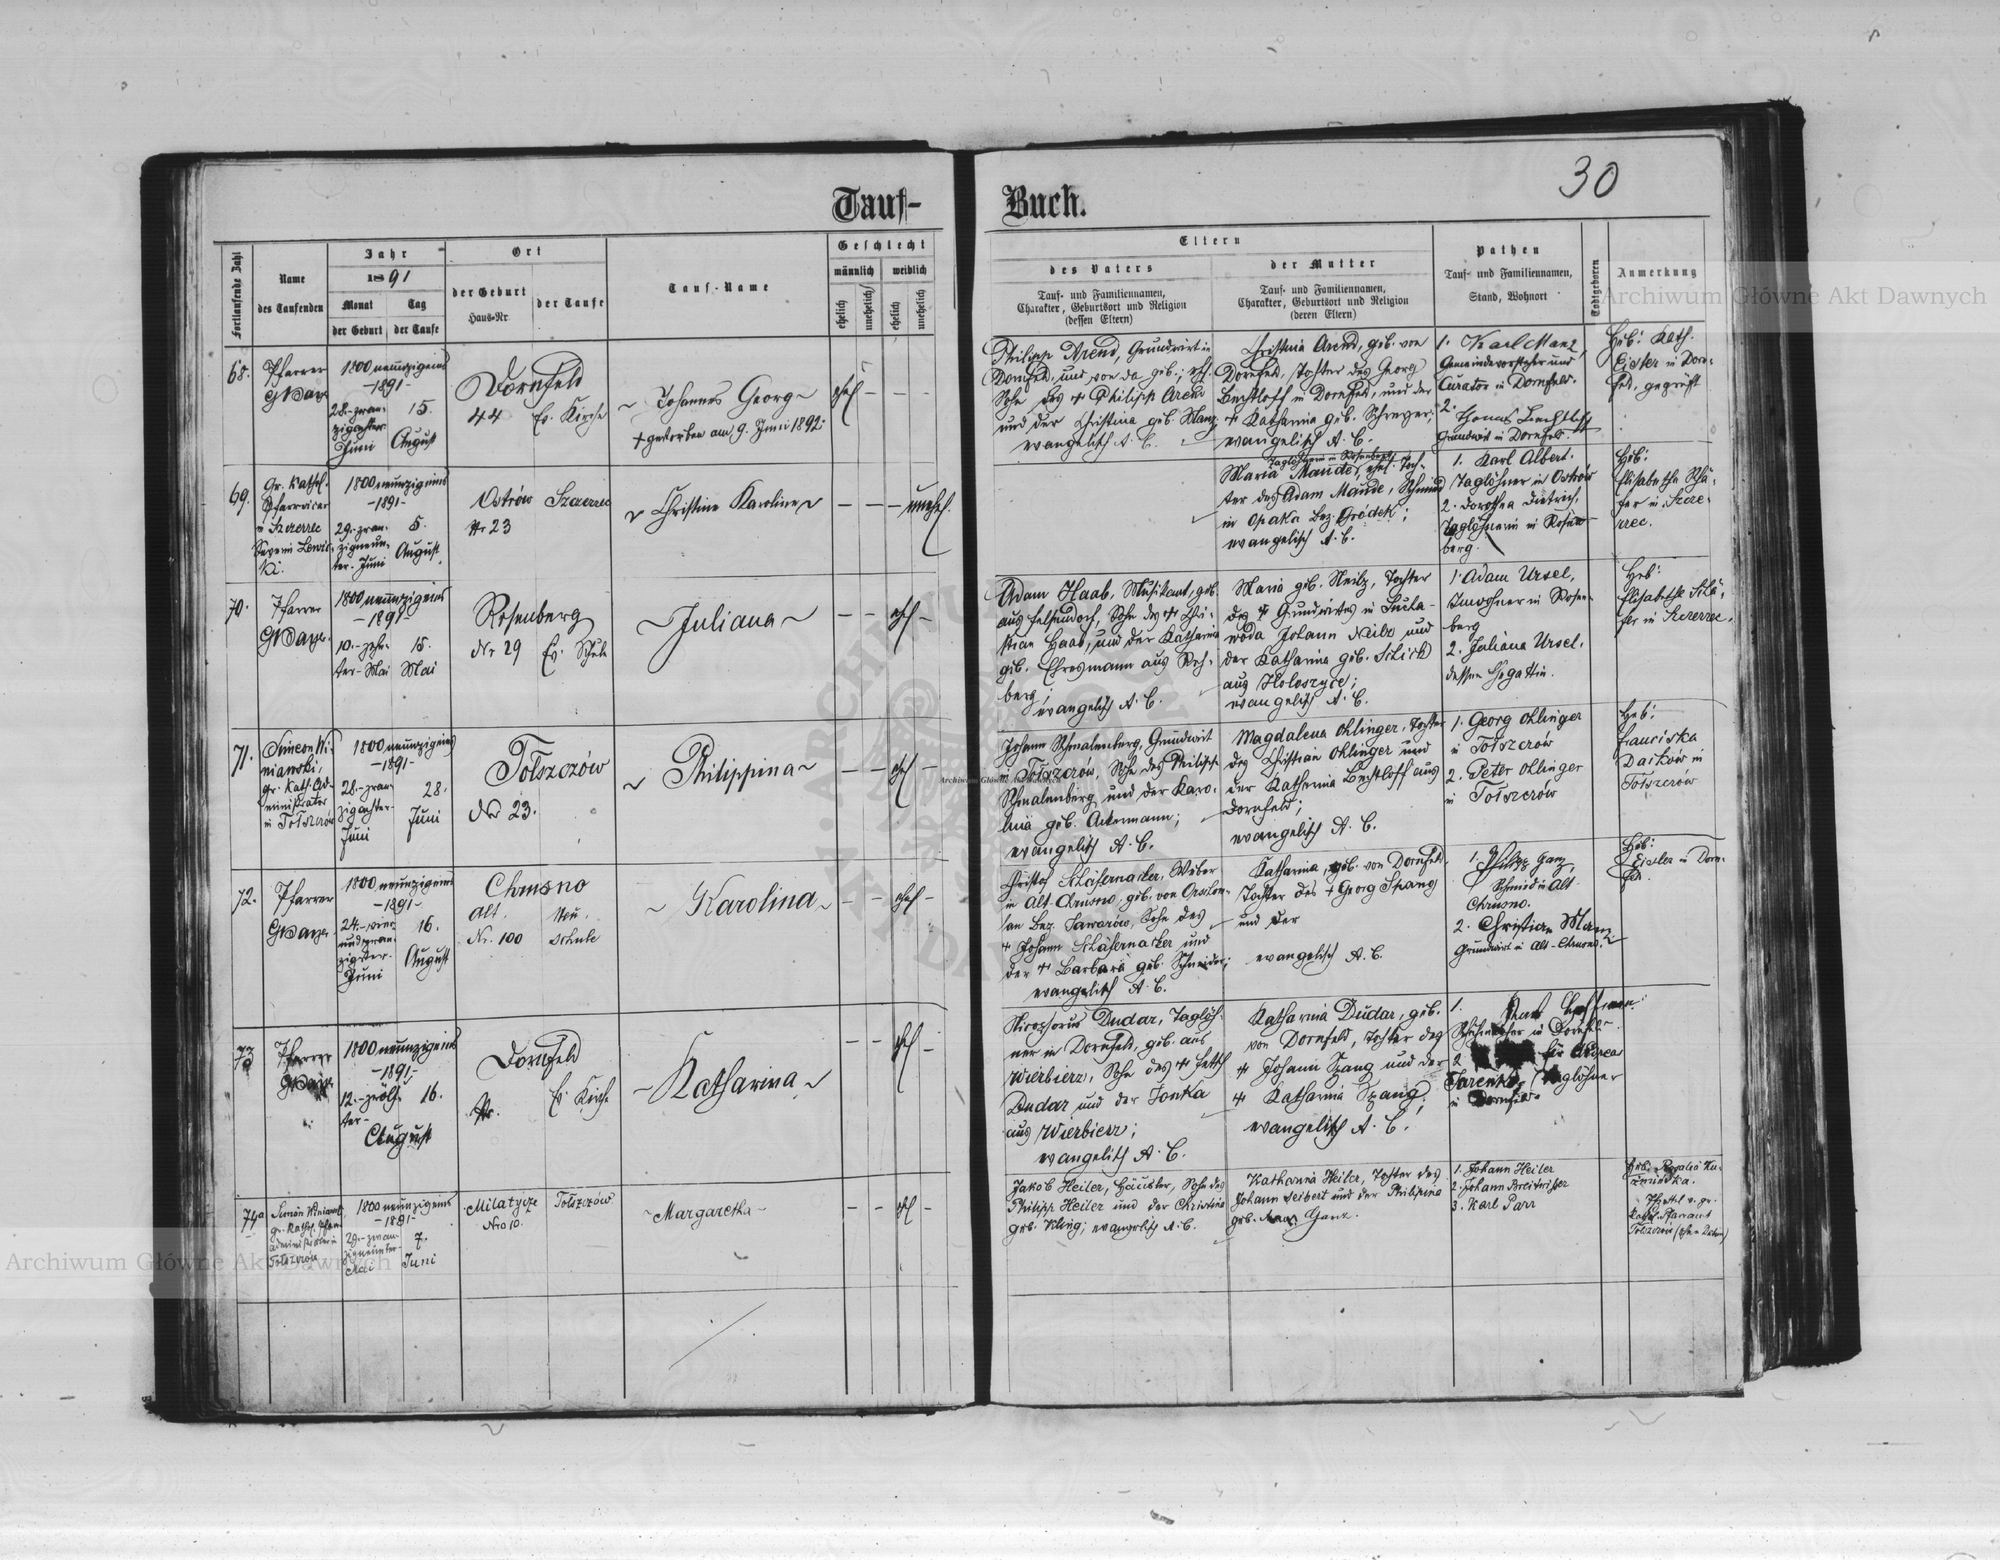 30
Tauf-
Buch.
Fortlaufende Zahl
Name
des Taufenden
Jahr
1891
Monat
der Geburt
Tag
der Taufe
Ort
der Geburt
Haus-Nr
der Taufe
Tauf-Name
Geschlecht
männlich
weiblich
ehelich
unehelich
ehelich
unehelich
Eltern
des Vaters
Tauf- und Familiennamen,
Charakter, Geburtsort und Religion
(dessen Eltern)
der Mutter
Tauf- und Familiennamen,
Charakter, Geburtsort und Religion
(deren Eltern)
Pathen
Tauf- und Familiennamen,
Stand, Wohnort
Todtgeboren
Anmerkung
68.
Pfarrer
1800 neunzigeins
-1891-
28.-zwan-
zigachter
Juni
15.
August
Dornfeld
44
Ev. Kirche
Johannes Georg
+ gestorben am 9. Juni 1892.
ehel
Philipp Arend, Grundwirt in
Dornfeld, und von da geb.; ehl.
Sohn des + Philipp Arend
und der Christina geb. Manz
evangelisch A. C.
Christina Arend, geb. von
Dornfeld, Tochter des Georg
Bechtloff in Dornfeld, und der
+ Katharina geb. Schreyer;
evangelisch A. C.
1. Karl Manz
Gemeindevorsteher und
Curator in Dornfeld.
2.
Bechtloff
Grundwirt in Dornfeld.
Heb: Kath.
Eisler in Dorn-
feld, geprüft
69.
Gr. Kathol.
Pfarrvicar
in Szczerzec
1800 neunzigeins
-1891-
29.-zwan-
zigneun-
ter. Juni
5.
August
Ostrów
Nr 23
Szczerzec
Christine Karoline
unehel.
Taglöhnerin in Rosenberg
Maria Maude, ehel. Toch-
ter des Adam Maude, Schmied
in Opaka Bez. Gródek;
evangelisch A. C.
1. Karl Albert.
Taglöhner in Ostrów
2. Dorothea Dietrich,
Taglöhnerin in Rosen-
berg.
Heb:
Elisabetha Schä-
fer in Szcze-
rzec.
70.
Pfarrer
1800 neunzigeins
-1891-
10.-zehn-
ter-Mai
15.
Mai
Rosenberg
Nr 29
Ev. Schule
Juliana
ehel
Adam Haab, Musikant, geb.
aus Falkendorf, Sohn des + Chri-
stian Haab, und der Katharina
geb. Ehresmann aus Reh-
berg;
evangelisch A. C.
Maria geb. Neilz, Tochter
des + Grundwirtes in
Johann Neilz und
der Katharina geb. Schick
aus Holoszyce;
evangelisch A. C.
1. Adam Ursel,
Inwohner in Rosen-
berg
2. Juliana Ursel,
dessen Ehegattin.
Heb:
Elisabetha Schä-
fer in Szczerzec.
71.
Simeon Wi-
nianski,
gr. Kath. Ad-
ministrator
in Tołszczów
1800 neunzigeins
-1891-
28.-zwan-
zigachter-
Juni
28.
Juni
Tołszczów
No 23.
Philippina
ehel
Johann Schmalenberg, Grundwirt
in Tołszczów, Sohn des Philipp
Schmalenberg und der Karo-
lina geb. Ackermann;
evangelisch A. C.
Magdalena Ohlinger, Tochter
des Christian Ohlinger und
der Katharina Bechtloff aus
Dornfeld;
evangelisch A. C.
1. Georg Ohlinger
in Tołszczów
2. Peter Ohlinger
in Tołszczów
Heb:
Franciska
Darków in
Tołszczów
72.
Pfarrer
1800 neunzigeins
-1891-
24.-vier-
undzwan-
zigster-
Juni
16.
August
Chrusno
Alt.
Nr. 100
Neu.
Schule
Karolina
ehel
Christof Schäfernacker, Weber
in Alt-Chrusno, geb. von
Bez. Jaworów, Sohn des
+ Johann Schäfernacker und
der + Barbara geb. Schneider;
evangelisch A. C.
Katharina, geb. von Dornfeld,
Tochter des + Georg Spang
und der
evangelisch A. C.
1. Philipp Ganz,
Schmied in Alt-
Chrusno.
2. Christian Manz
Grundwirt in Alt-Chrusno.
Heb:
Eisler in Dorn-
feld.
73
Pfarrer
1800 neunzigeins
-1891-
12.-zwölf-
ter-
August
16.
Dornfeld
Nr.
Ev. Kirche
Katharina
ehel
Nicephorus Dudar, Taglöh-
ner in Dornfeld, geb. aus
Wierbierz, Sohn des +
Dudar und der Jonka
aus Wierbierz;
evangelisch A. C.
Katharina Dudar, geb.
von Dornfeld, Tochter des
+ Johann Spang und der
+ Katharina Spang;
evangelisch A. C.
1.
in Dornfeld
2.
für Andreas
Taglöhner
in Dornfeld
74a
Simeon Winianski
gr. Kathol. Pfarr-
administrator in
Tołszczów
1800 neunzigeins
-1891-
29.-zwan-
zigneunter-
Mai
7.
Juni
Milatycze
Nro 10.
Tołszczów
Margaretha
ehel
Jakob Heiler, Häusler, Sohn des
Philipp Heiler und der Christina
geb. Kling; evangelisch A. C.
Katharina Heiler, Tochter des
Johann Seibert und der Philipina
geb. Ganz.
1. Johann Heiler
2. Johann Breitwieser
3. Karl Parr
Heb: Rosalia Ku-
zminska.
Kathol. Pfarramt
Tołszczów (ohne Datum)
Archiwum Główne Akt Dawnych
Archiwum Główne Akt Dawnych
Archiwum Główne Akt Dawnych